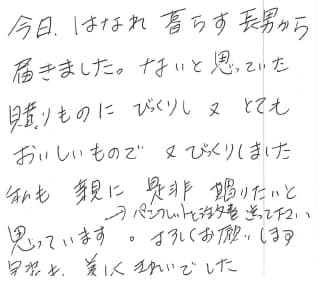 今日、はなれ暮らす長男から
届きました。ないと思っていた
贈りものにびっくりし又とても
おいしいもので又びっくりしました
私も親に是非贈りたいと
→パンフレットと注文書送って下さい
思っています。よろしくお願いします
美しくきれいでした